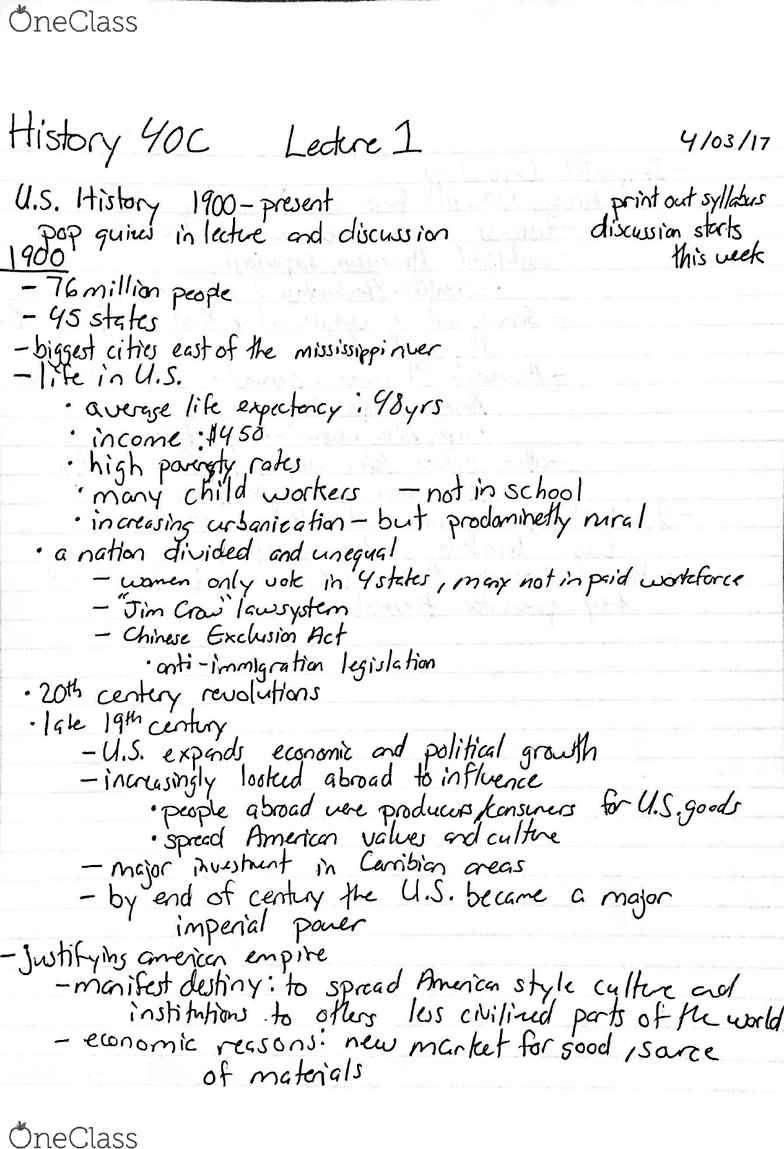 OneClass
History 40C Lecture 1 4/03/17
U.S. History 1900-present print out syllabus
pop quizes in lecture and discussion discussion starts
1900 this week
- 76 million people
- 45 states
- biggest cities east of the mississippi river
- life in U.S.
• average life expectency : 48yrs
• income : $450
• high poverty rates
• many child workers - not in school
• increasing urbanization - but prodominetly rural
• a nation divided and unequal
- women only vote in 4 states, many not in paid workforce
- "Jim Crow" law system
- Chinese Exclusion Act
• anti-immigration legislation
• 20th century revolutions
• late 19th century
- U.S. expands economic and political growth
- increasingly looked abroad to influence
• people abroad were producers/consumers for U.S. goods
• spread American values and culture
- major investment in Carribian areas
- by end of century the U.S. became a major
imperial power
- Justifying american empire
- manifest destiny: to spread American style culture and
institutions to others less civilized parts of the world
- economic reasons: new market for good, source
of materials
OneClass